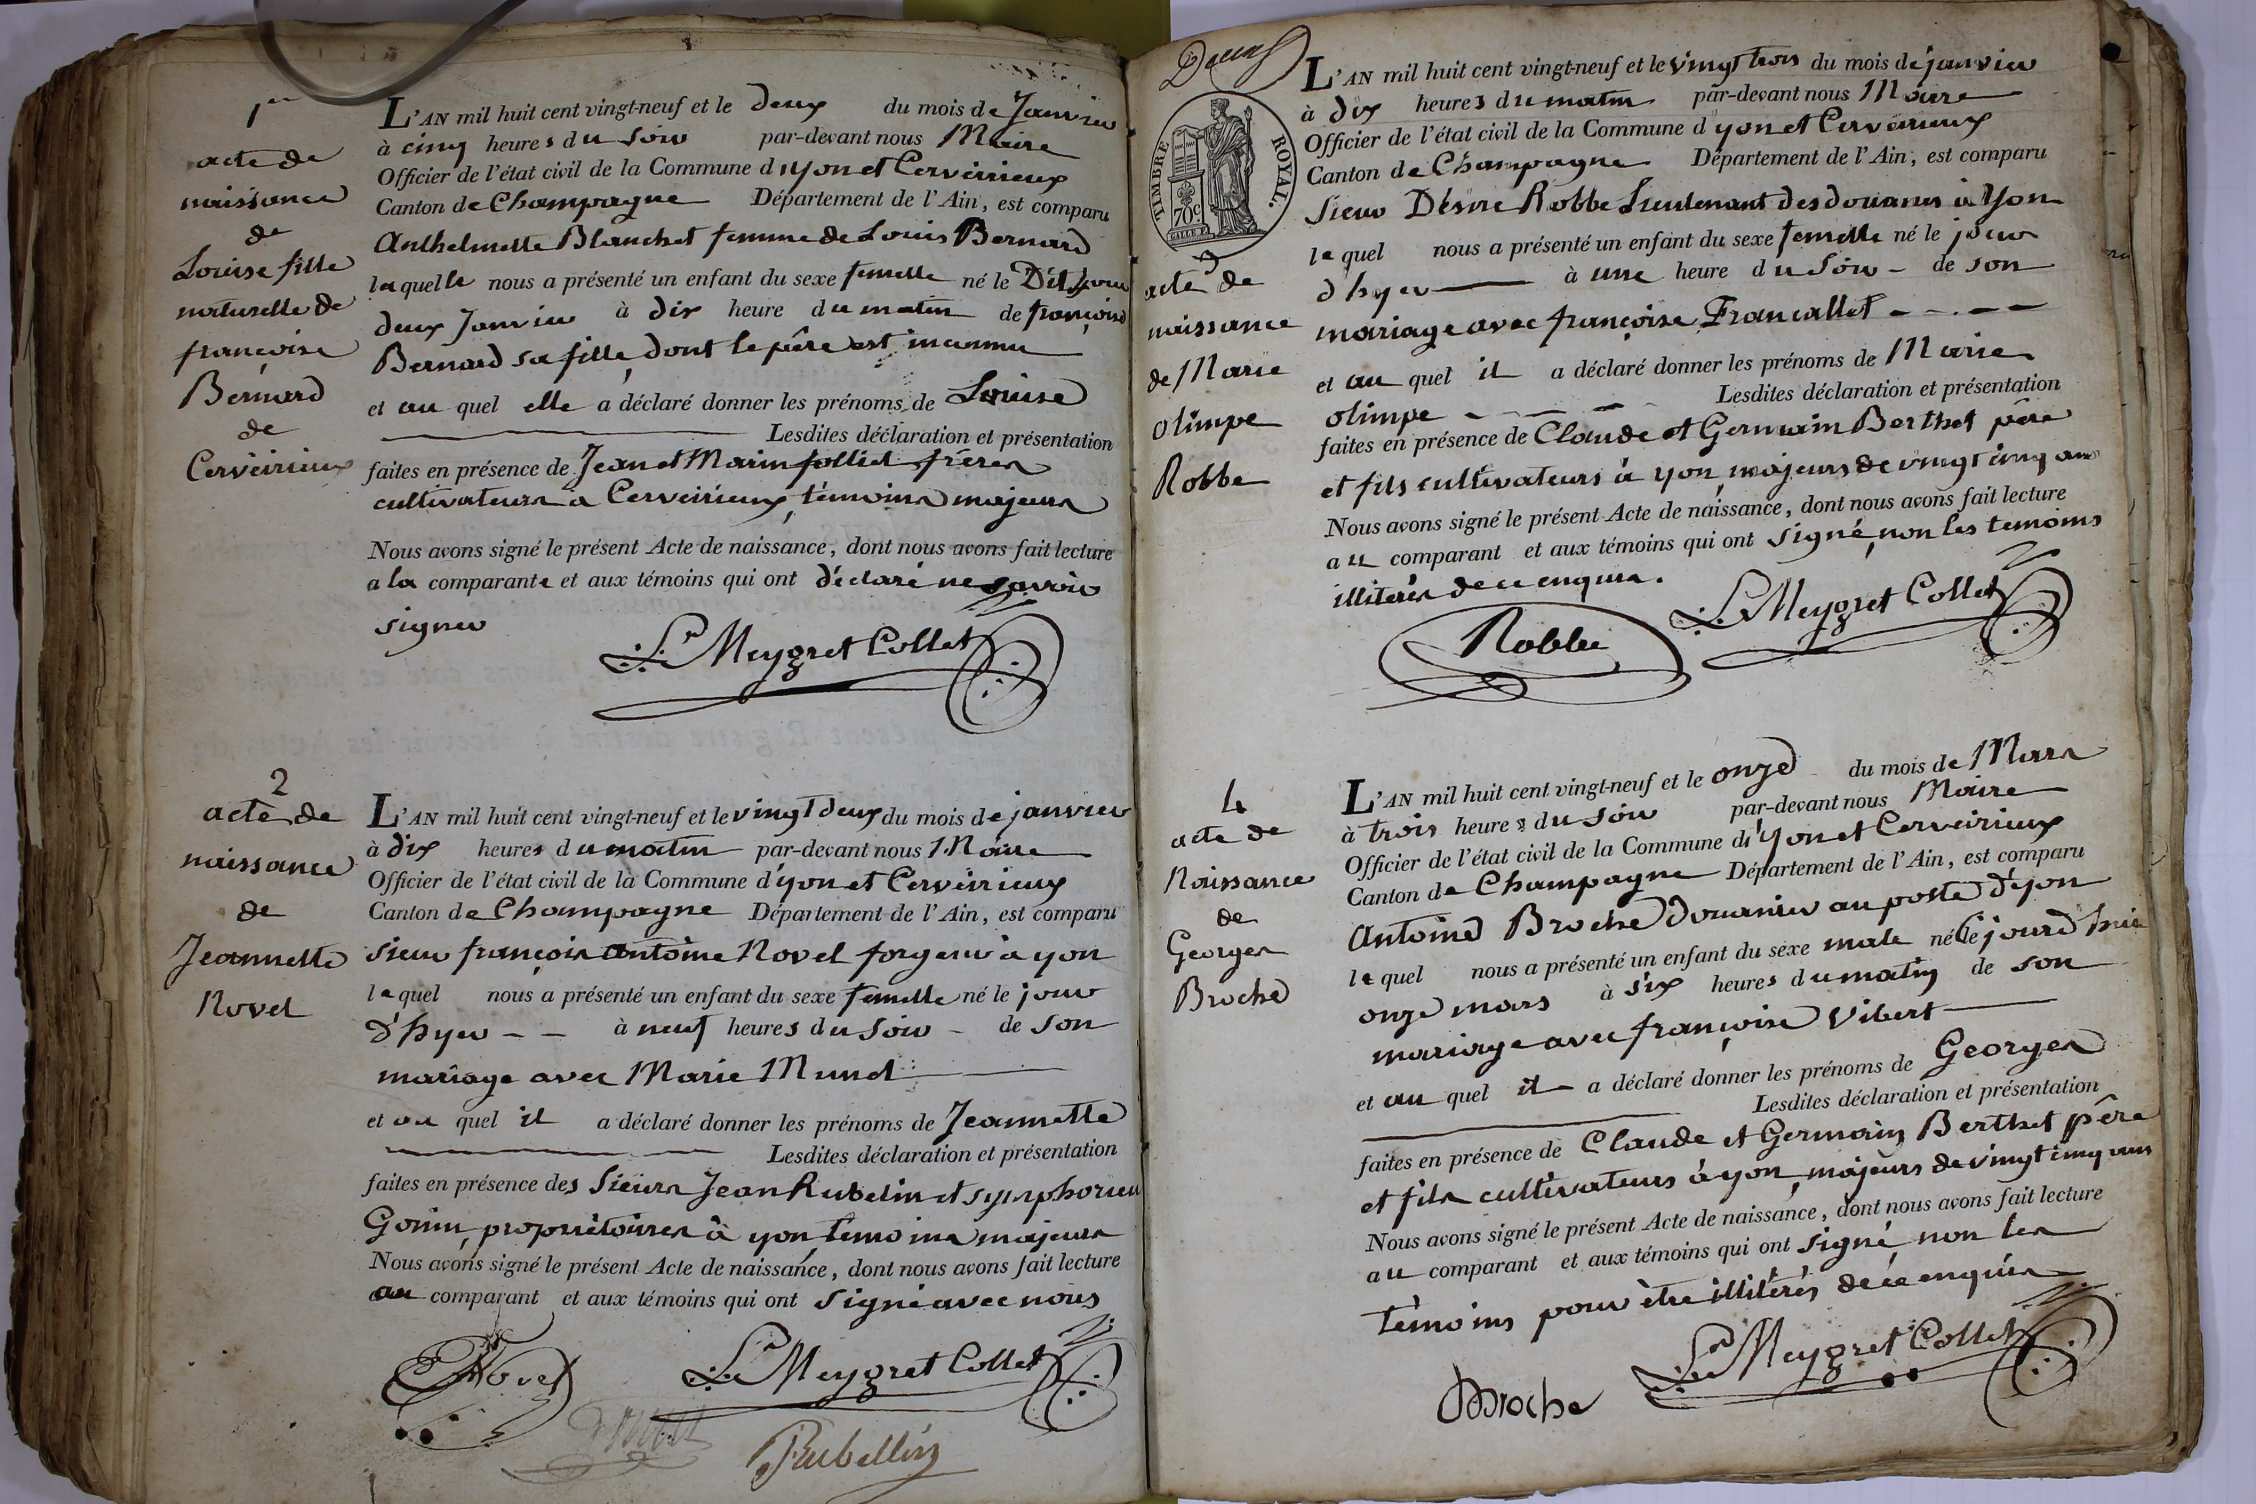 1er
acte de
naissance
de
Louise fille
naturelle de
françoise
Bernard
de
Cerveirieux
L'AN mil huit cent vingt-neuf et le deux du mois de Janvier
à cinq heures du soir par-devant nous Maire
Officier de l'état civil de la Commune d'yon et Cerveirieux
Canton de Champagne Département de l'Ain, est comparu
Anthelmette Blanchet femme de Louis Bernard
laquelle nous a présenté un enfant du sexe femelle né le Dit jour
deux Janvier à dix heure du matin de françoise
Bernard sa fille, dont le père est inconnu
et au quel elle a déclaré donner les prénoms de Louise
Lesdites déclaration et présentation
faites en présence de Jean et Marin folliet frères
cultivateurs a Cerveirieux, témoins majeurs
Nous avons signé le présent Acte de naissance, dont nous avons fait lecture
a la comparante et aux témoins qui ont déclaré ne savoir
signer
Lse Meygret Collet
2
acte de
naissance
de
Jeannette
Novel
L'AN mil huit cent vingt-neuf et le vingt deux du mois de janvier
à dix heures du matin par-devant nous Maire
Officier de l'état civil de la Commune d'yon et Cerveirieux
Canton de Champagne Département de l'Ain, est comparu
sieur françois antoine Novel forgeur à yon
lequel nous a présenté un enfant du sexe femelle né le jour
d'hyer à neuf heures du soir de son
mariage avec Marie Munet
et au quel il a déclaré donner les prénoms de Jeannette
Lesdites déclaration et présentation
faites en présence des sieurs Jean Rubelin et symphorien
Gonin, propriétoires à yon, témoins majeurs
Nous avons signé le présent Acte de naissance, dont nous avons fait lecture
au comparant et aux témoins qui ont signé avec nous
Novel
Meygret Collet
Rubellin
TIMBRE ROYAL.
70c.
L'AN mil huit cent vingt-neuf et le vingt trois du mois de janvier
à dix heures du matin par-devant nous Maire
Officier de l'état civil de la Commune d'yon et Cerveirieux
Canton de Champagne Département de l'Ain, est comparu
sieur Désiré Robbe Lieutenant des douanes à Yon
lequel nous a présenté un enfant du sexe femelle né le jour
d'hyer à une heure du soir de son
mariage avec françoise Francallet
et au quel il a déclaré donner les prénoms de Marie
olimpe Lesdites déclaration et présentation
faites en présence de Claude et Germain Berthet père
et fils cultivateurs à yon, majeurs de vingt cinq ans
Nous avons signé le présent Acte de naissance, dont nous avons fait lecture
au comparant et aux témoins qui ont signé, non les temoins
illiterés de ce enquis.
acte de
naissance
de Marie
olimpe
Robbe
Robbe
Meygret Collet
4
acte de
Naissance
de
Georges
Broche
L'AN mil huit cent vingt-neuf et le onze du mois de Mars
à trois heures du soir par-devant nous Maire
Officier de l'état civil de la Commune d'yon et Cerveirieux
Canton de Champagne Département de l'Ain, est comparu
Antoine Broche douanier au poste d'yon
lequel nous a présenté un enfant du sexe male né le jourd'huie
onze mars à six heures du matin de son
mariage avec françoise Vibert
et au quel il a déclaré donner les prénoms de Georges
Lesdites déclaration et présentation
faites en présence de Claude et Germain Berthet père
et fils cultivateurs à yon, majeurs de vingt cinq ans
Nous avons signé le présent Acte de naissance, dont nous avons fait lecture
au comparant et aux témoins qui ont signé, non les
témoins pour être illitérés de ce enquis
Broche
Meygret Collet